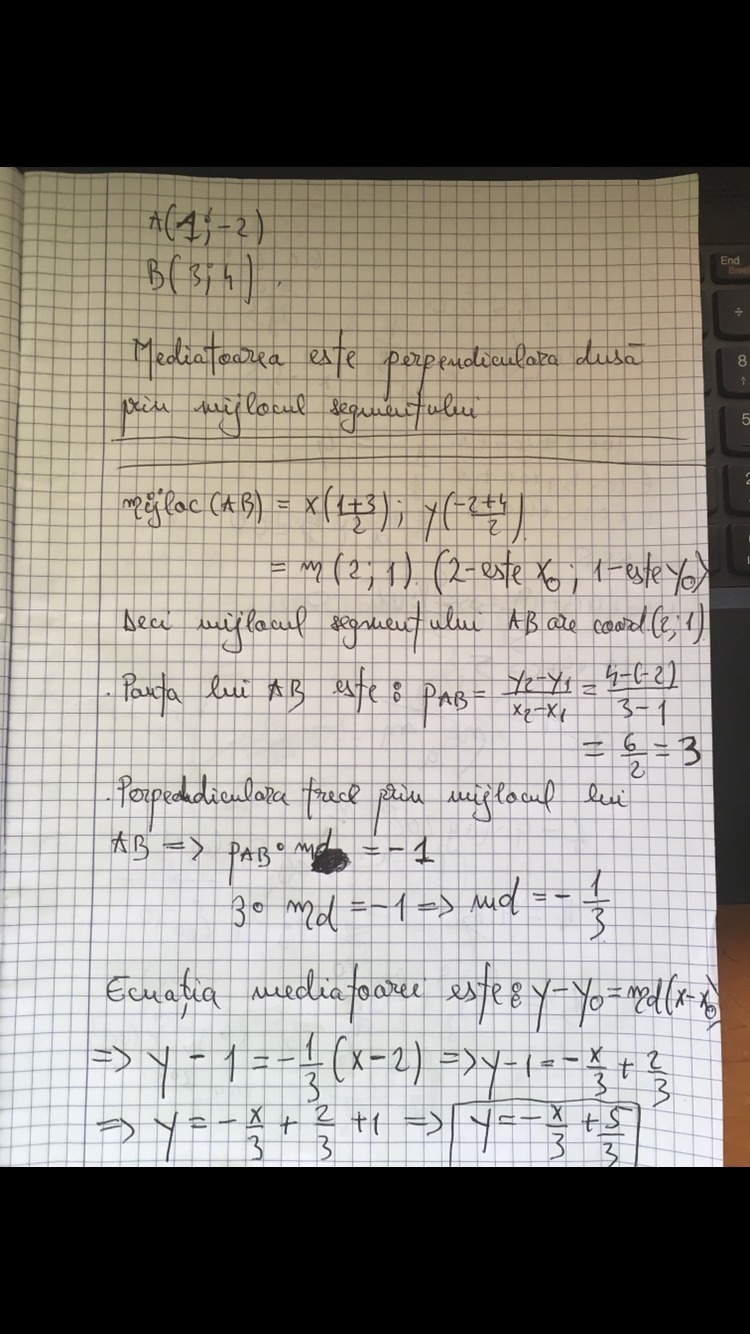 A(1;-2)
B(3;4).
Mediatoarea este perpendiculara dusă
prin mijlocul segmentului
mijloc(AB) = x(1+3/2); y(-2+4/2)
= m(2;1). (2-este x₀; 1-este y₀)
Deci mijlocul segmentului AB are coord.(2;1)
. Panta lui AB este: pAB = y₂-y₁/x₂-x₁ = 4-(-2)/3-1
= 6/2 = 3
. Perpendiculara trece prin mijlocul lui
AB => pAB · md = -1
3· md = -1 => md = -1/3
Ecuația mediatoarei este: y-y₀ = md(x-x₀)
=> y - 1 = -1/3 (x-2) => y-1 = -x/3 + 2/3
=> y = -x/3 + 2/3 +1 => y = -x/3 + 5/3
End
Break
÷
8
↑
5
2